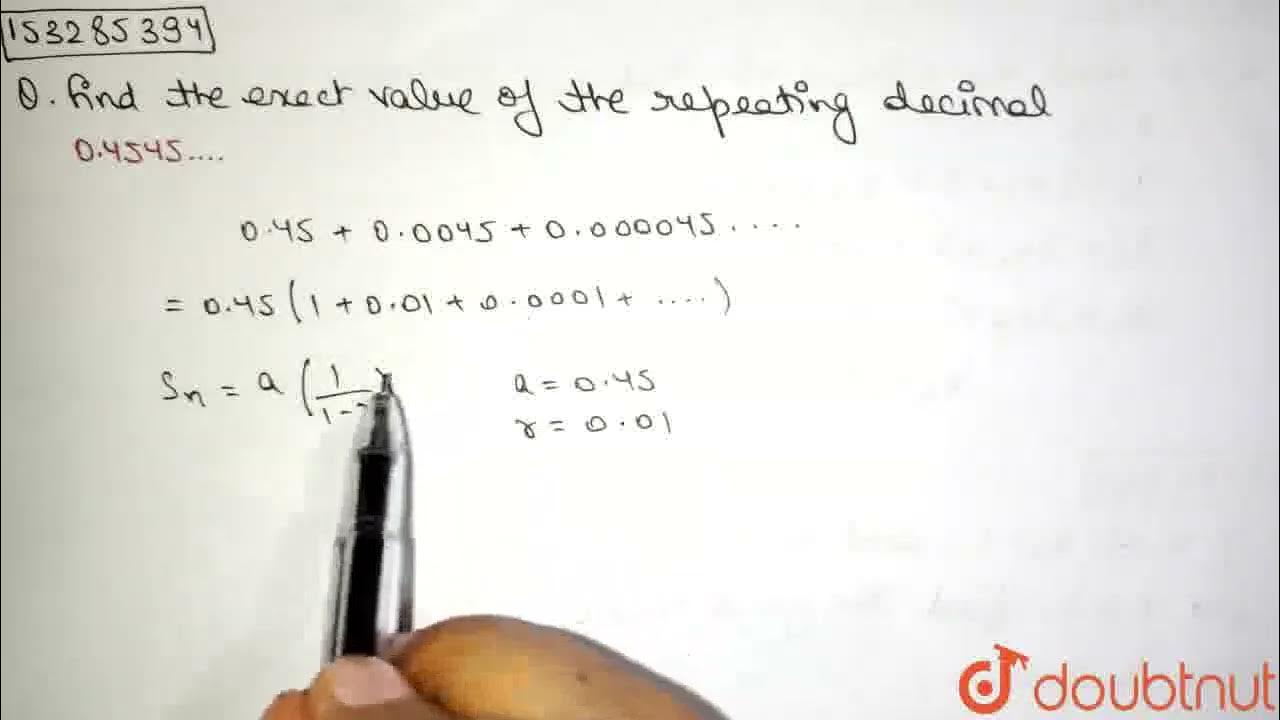 153285394
Q. find the exect value of the repeating decimal
0.4545....
0.45 + 0.0045 + 0.000045 ....
= 0.45 ( 1 + 0.01 + 0.0001 + .... )
Sn = a ( 1/1-
a = 0.45
r = 0.01
doubtnut